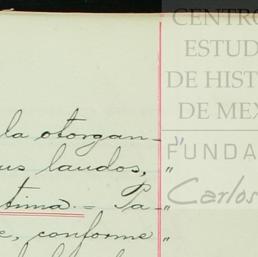 CENTRO
ESTUD
DE HIST
DE MEX
FUNDA
Carlos
la otorgan-"
us laudos,"
tima.= Pa-"
e, conforme"